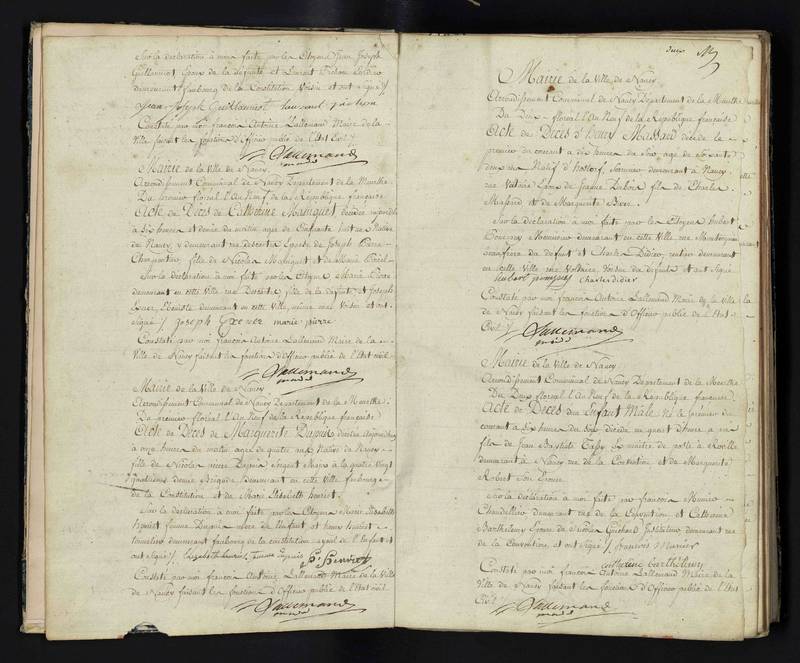 Sur la déclaration à moi faite par les Citoyens Jean Joseph
Guillaumot Epoux de la défunte et Laurent
demeurant faubourg de la Constitution Voisin et ont signé /.
Jean Joseph Guillaumot Laurent
Constaté par moi françois Antoine Lallemand Maire de la
Ville faisant les fonctions d'Officier public de l'Etat Civil /.
Lallemand
maire
Mairie de la Ville de Nancy
Arrondissement Communal de Nancy Département de la Meurthe.
Du premier floréal l'An Neuf de la République française
Acte de Décès de Catherine Mainguet décédée
à Six heures et demie du matin agée de Cinquante huit ans Native
de Nancy, y demeurant rue Epouse de Joseph
Charpentier, fille de Nicolas Mainguet et de Marie
Sur la déclaration à moi faite par les Citoyens Marie
demeurant en cette Ville rue fille de la défunte et Joseph
Ebéniste demeurant en cette Ville, même rue Voisin et ont
signé /. Joseph marie pierre
Constaté par moi françois Antoine Lallemand Maire de la
Ville de Nancy faisant les fonctions d'Officier public de l'Etat civil.
Lallemand
maire
Mairie de la Ville de Nancy
Arrondissement Communal de Nancy Département de la Meurthe.
Du premier floréal l'An Neuf de la République française
Acte de Décès de Marguerite Dupuis décédée Aujourd'hui
à une heure du matin agée de quatre ans Native de Nancy
fille de Nicolas Dupuis Sergent Major à la quatre Vingt
demi Brigade demeurant en cette Ville faubourg
de la Constitution et de Marie Elisabeth henriet.
Sur la déclaration à moi faite par les Citoyens Marie Elisabeth
henriet femme Dupuis mère de l'Enfant et henry henriet
tonnelier demeurant faubourg de la constitution ayeul de l'Enfant et
ont signé /. Elizabeth henriet femme Dupuis h. henriet
Constaté par moi françois Antoine Lallemand Maire de la Ville
de Nancy faisant les fonctions d'Officier public de l'Etat civil.
Lallemand
maire
Mairie de la Ville de Nancy
Arrondissement Communal de Nancy Département de la Meurthe
Du Deux floréal l'An Neuf de la République française
Acte de Décès d'henry Massard décédé le
premier du courant à dix heures du Soir, agé de Soixante
deux ans Natif d' demeurant à Nancy
rue Voltaire Epoux de Jeanne fils de Charles
et de Marguerite
Sur la déclaration à moi faite par les Citoyens hubert
demeurant en cette Ville rue
beaufrère du défunt et Charles Didier, demeurant
en cette Ville rue Voltaire, Voisin du défunt et ont signé
hubert Charles didier
Constaté par moi françois Antoine Lallemand Maire de la Ville
de Nancy faisant les fonctions d'Officier public de l'Etat
Civil /.
Lallemand
maire
Mairie de la Ville de Nancy
Arrondissement Communal de Nancy Département de la Meurthe
Du Deux floréal l'An Neuf de la République française
Acte de Décès d'un Enfant Mâle né le premier du
courant à six heures du Soir décédé un quart d'heure après
fils de Jean Baptiste maître de poste à
demeurant à Nancy rue de la Constitution et de Marguerite
Robert Son Epouse
Sur la déclaration à moi faite par françois Munier
Chandellier demeurant rue de la Convention et Catherine
Barthelemy Epouse de Nicolas Guichard Instituteur demeurant rue
de la Convention, et ont signé /. francois Munier
catherine barthelemy
Constaté par moi françois Antoine Lallemand Maire de la
Ville de Nancy faisant les fonctions d'Officier public de l'Etat
Civil /.
Lallemand
maire